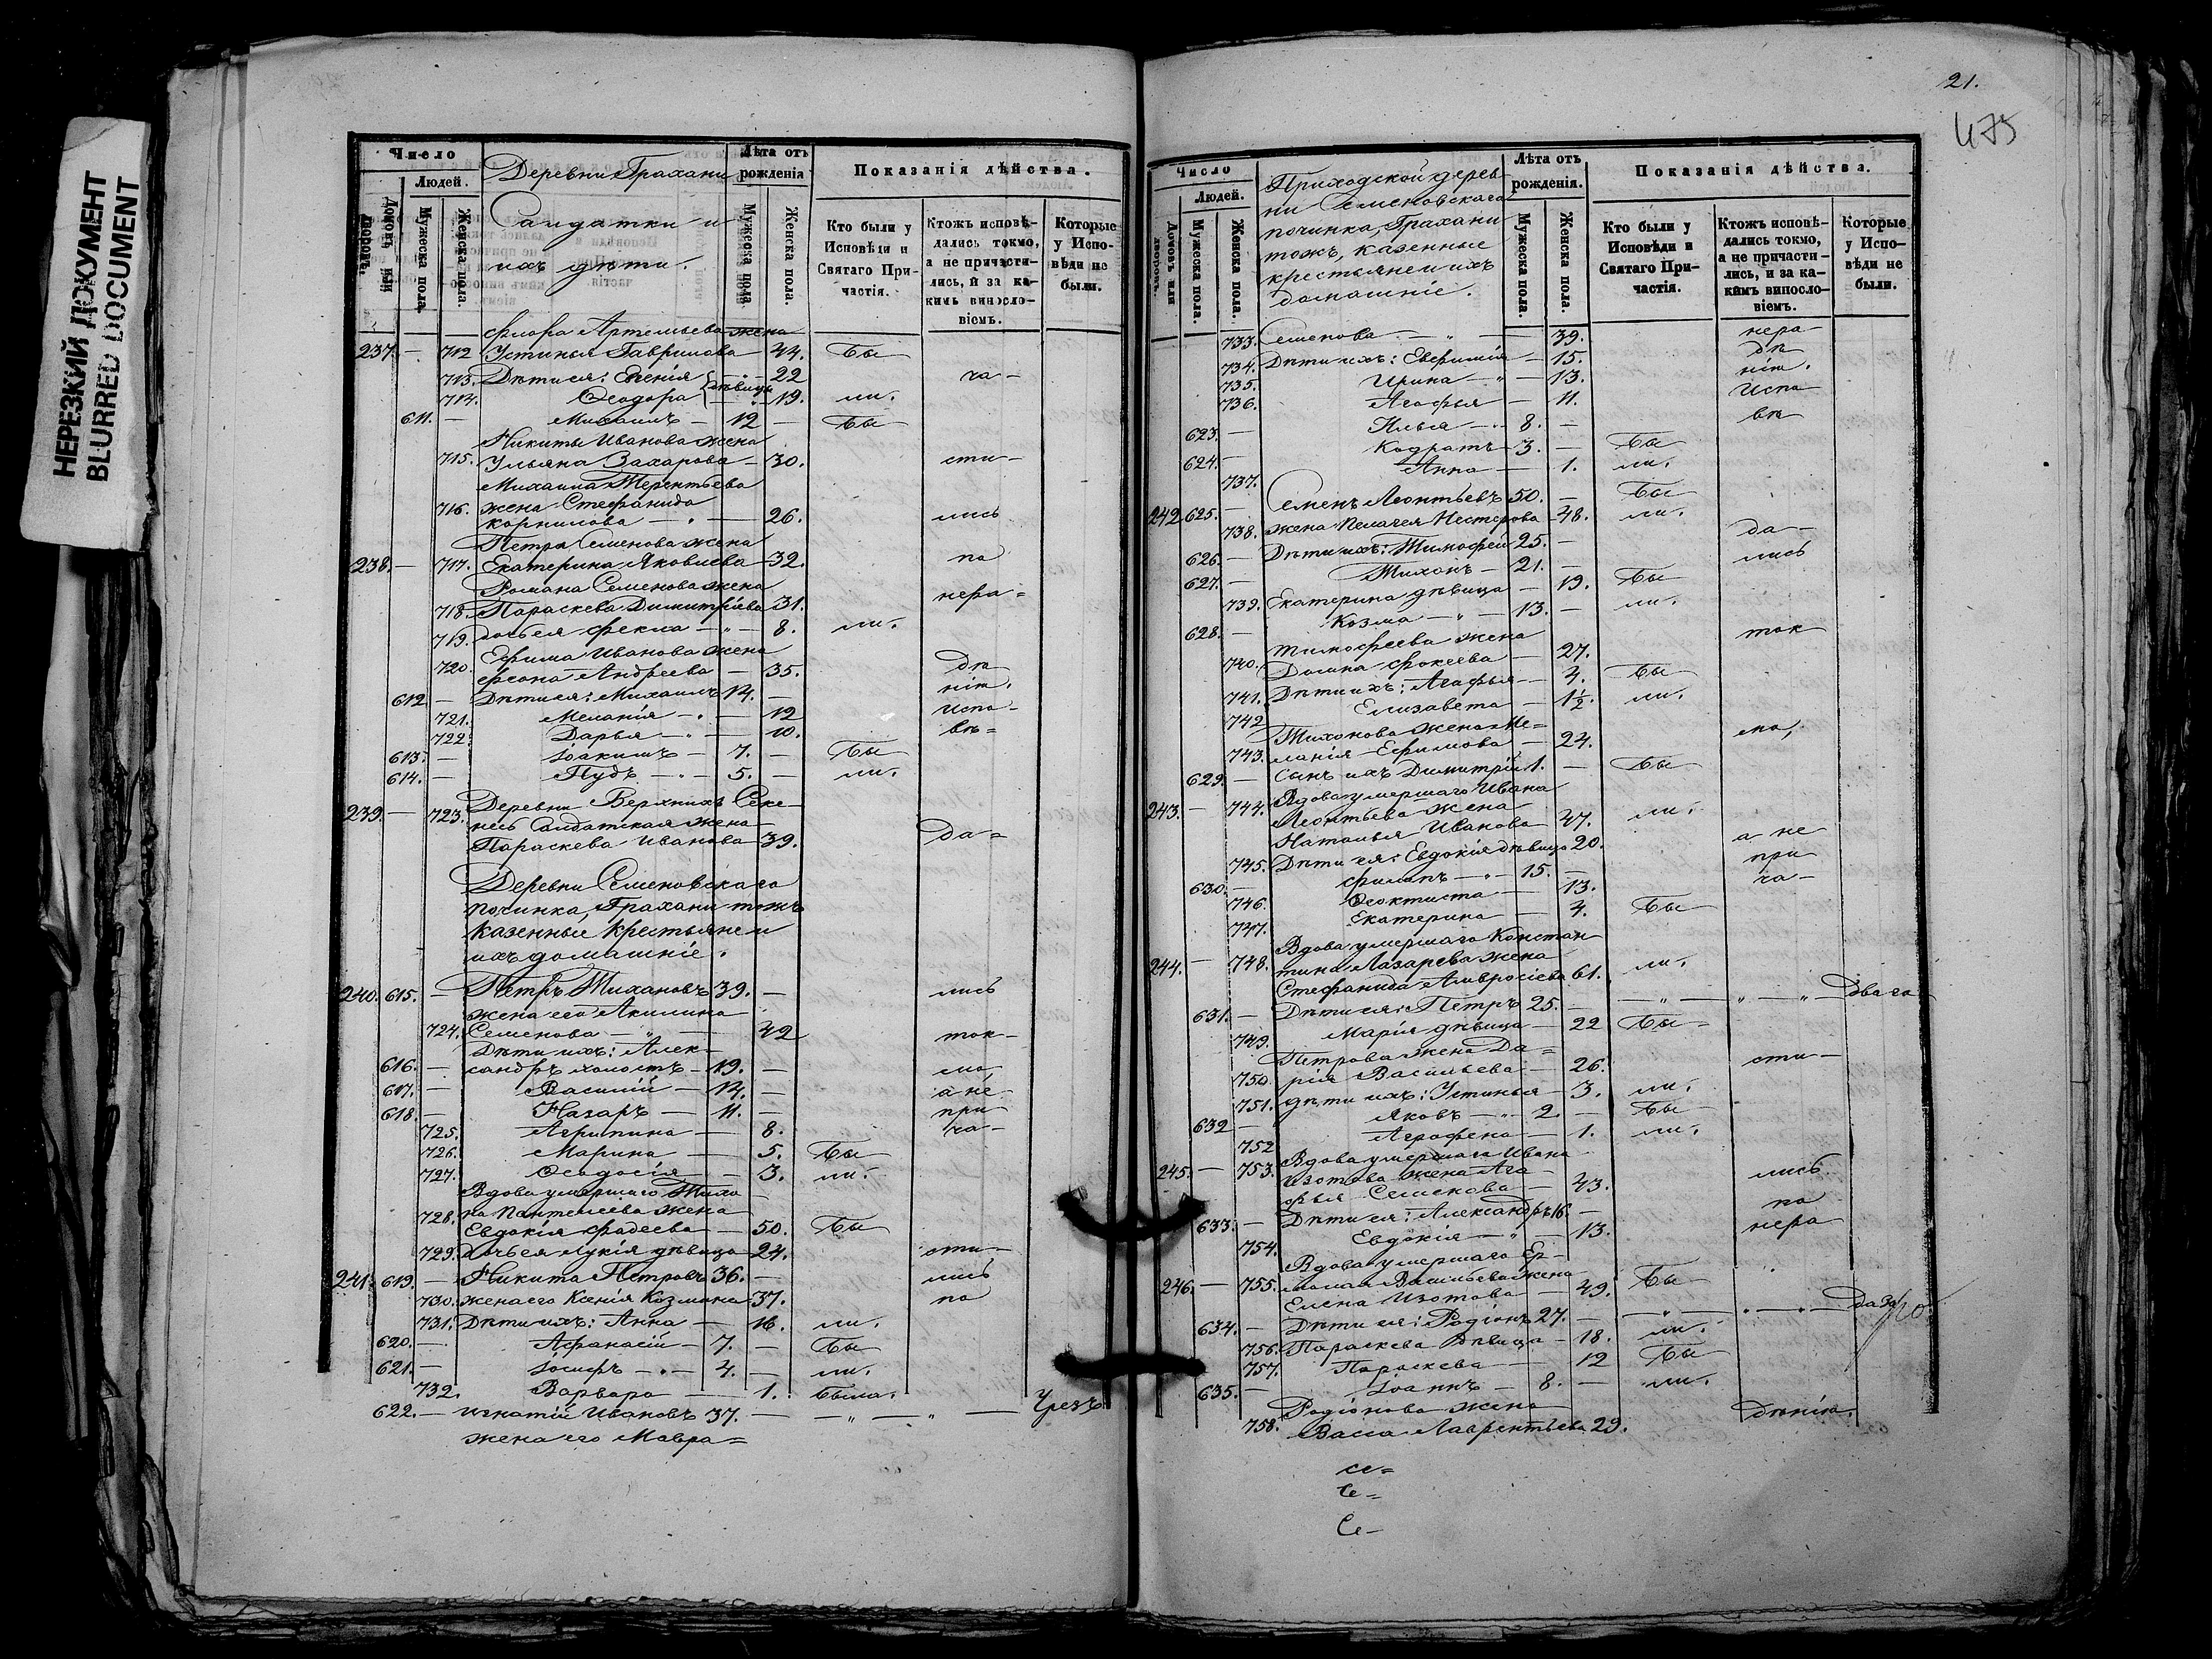 НЕРЕЗКИЙ ДОКУМЕНТ
BLURRED DOCUMENT
Число
Людей.
Домовъ или дворовъ.
Мужеска пола.
Женска пола.
Деревни Грахани
Салдатки и
ихъ дѣти.
Лѣта отъ рожденія
Мужеска пола.
Женска пола.
Показанія дѣйства.
Кто были у Исповѣди и Святаго Причастія.
Ктожъ исповѣдались токмо, а не причастились, и за какимъ винословіемъ.
Которые у Исповѣди не были.
Флора Артемьева жена
237. — 712 Устинья Гаврилова 44. Бы
713. Дѣти ея: Евгенія } дѣвицы 22 ча-
714. Ѳеодора 19. ли.
611. — Михаилъ — 12 — Бы
Никиты Иванова жена
715. Ульяна Захарова — 30. сти-
Михаила Терентьева
716. жена Стефанида
Корнилова — 26. лись
Петра Семенова жена
238. — 717. Екатерина Яковлева 32. по
Романа Семенова жена
718. Параскева Димитріева 31. нера=
719. дочь ея Фекла — 8. ли.
Ефима Иванова жена
720. Андреева — 35. дѣ
612 — Дѣти ея: Михаилъ 14. — нію.
721. Меланія — 12 Испо-
722. Дарья — 10. вѣ=
613. — Іоакимъ — 7. — Бы
614. — Пудъ — 5. — ли.
239. — 723. Деревни Верхнихъ
Салдатская жена
Параскева Иванова 39. да=
Деревни Семеновскаго
починка, Грахани тожъ
казенные крестьяне и
ихъ домашніе.
240. 615. — Петръ Тихановъ 39. — лись
жена его Акилина
724. Семенова — 42 ток-
Дѣти ихъ: Алек-
616. — сандръ холостъ — 19. — мо,
617. — Василій — 14. — а не
618. — Назаръ — 11. — при
725. Агрипина — 8. ча-
726. Марина — 5. Бы
727. Ѳеодосія — 3. ли.
Вдова умершаго Тихо
728. на Пантелеева жена
Евдокія Фадеева — 50. Бы
729. Дочь ея Лукія дѣвица 24. сти-
241. 619. — Никита Петровъ 36. — лись
730. жена его Ксенія Козмина 37. по
731. Дѣти ихъ: Анна — 16. ли.
620. — Афанасій — 7. — Бы
621. — Іосифъ — 4. — ли.
732. Варвара — 1. была.
622. — Игнатій Ивановъ 37. — Чрезъ
жена его Мавра=
21.
475
Число
Людей.
Домовъ или дворовъ.
Мужеска пола.
Женска пола.
Приходской дерев
ни Семеновскаго
починка, Грахани
тожъ, казенные
крестьяне и ихъ
домашніе.
Лѣта отъ рожденія.
Мужеска пола.
Женска пола.
Показанія дѣйства.
Кто были у Исповѣди и Святаго Причастія.
Ктожъ исповѣдались токмо, а не причастились, и за какимъ винословіемъ.
Которые у Исповѣди не были.
733. Семенова — 39. нера
734. Дѣти ихъ: Евфимія — 15. дѣ
735. Ирина — 13. нію.
736. Агафья — 11. Испо
623. — Илья — 8. — вѣ
624. — Кодратъ — 3. — Бы
737. Анна — 1. ли.
242 625. — Семенъ Леонтьевъ 50. — Бы
738. жена Пелагея Нестерова 48. ли.
626. — Дѣти ихъ: Тимофей 25. — да-
627. — Тихонъ — 21. — лись
739. Екатерина дѣвица — 19. Бы
628. — Козма — 13. — ли.
Тимофеева жена ток
740. Домна Фокеева — 27.
741. Дѣти ихъ: Агафья — 4. Бы
742 Елизавета — 1½. ли.
Тихонова жена Ме= мо,
743. ланія Ефимова — 24.
629. — Сынъ ихъ Димитрій 1. — Бы
243. — 744. Вдова умершаго Ивана
Леонтьева жена
Наталья Иванова 47. ли.
745. Дѣти ея: Евдокія дѣвица 20. а не
630. — Филипъ — 15. — при
746. Ѳеоктиста — 13. ча-
747. Екатерина — 4. Бы
Вдова умершаго Констан
244. — 748. тина Лазарева жена
Стефанида Амвросіева 61. ли.
631. — Дѣти ея: Петръ 25. —
749. Марія дѣвица — 22 Бы=
Петрова жена Да= сти-
750. рія Васильева — 26.
751. Дѣти ихъ: Устинья — 3. ли.
632 — Яковъ — 2. — Бы
752 Аграфена — 1. ли.
245. — 753. Вдова умершаго Ивана
Изотова жена Ага лись
фья Семенова — 43. по
633. — Дѣти ея: Александръ 16. —
754. Евдокія — 13. нера
Вдова умершаго Ер-
246. — 755. молая Васильева жена Бы
Елена Изотова — 49.
634. — Дѣти ея: Родіонъ 27. —
756. Параскева дѣвица — 18. ли.
757. Параскева — 12 Бы
635. — Іоаннъ — 8. — ли.
Родіонова жена
758. Васса Лаврентьева 29. дѣнію.
се=
Се-